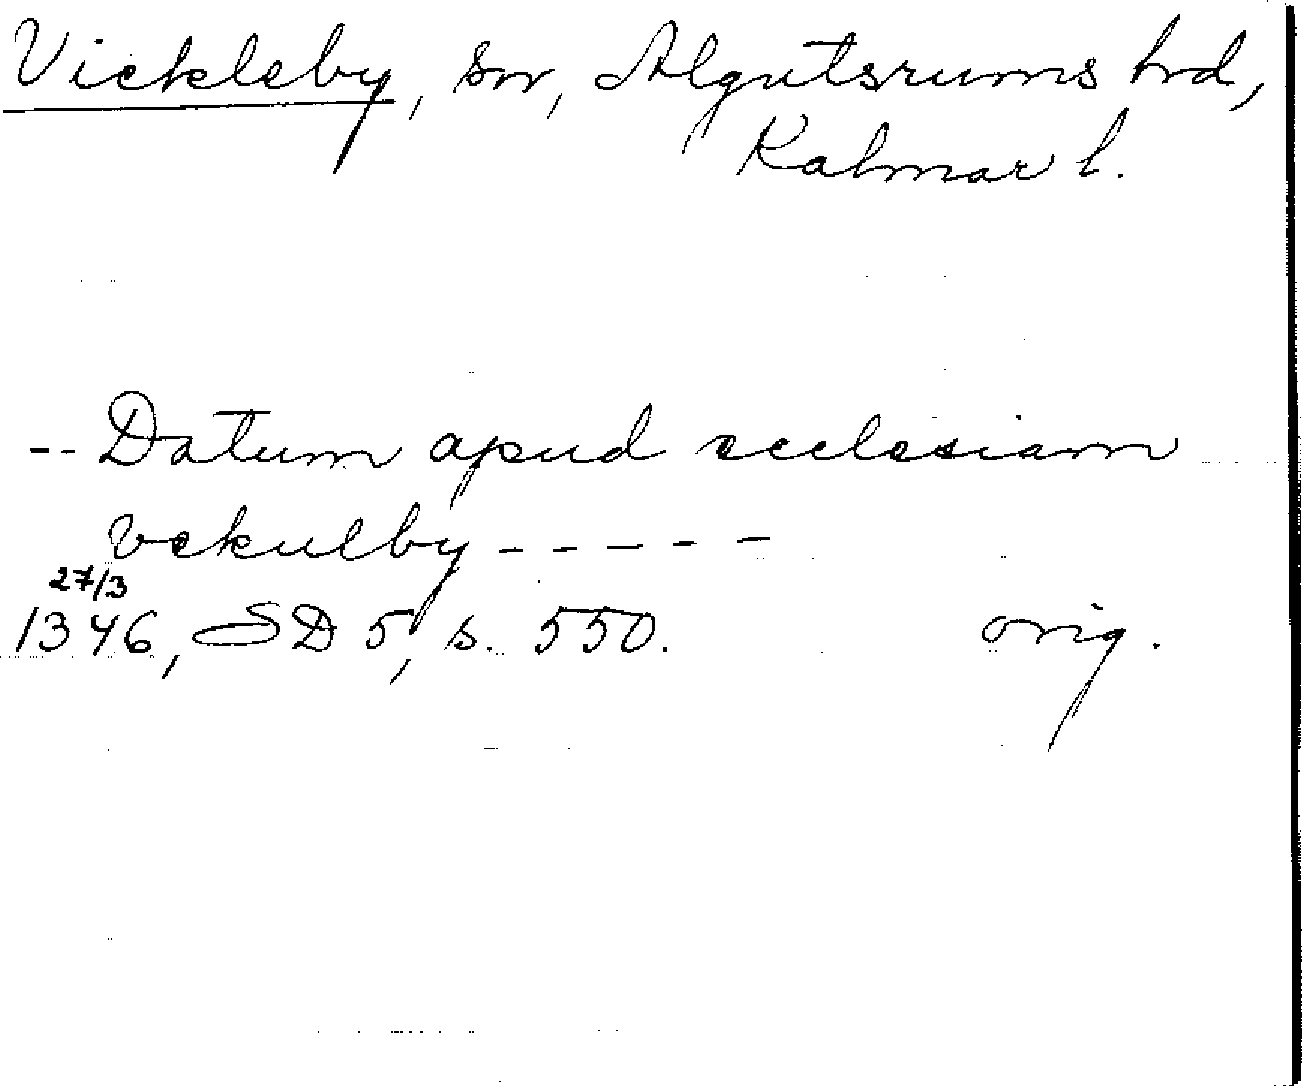 Vickleby, sn, Algutsrums hd,
Kalmar l.
-- Datum apud ecclesiam
vekulby - - - - -
27/3
1346, SD 5, s. 550. orig.